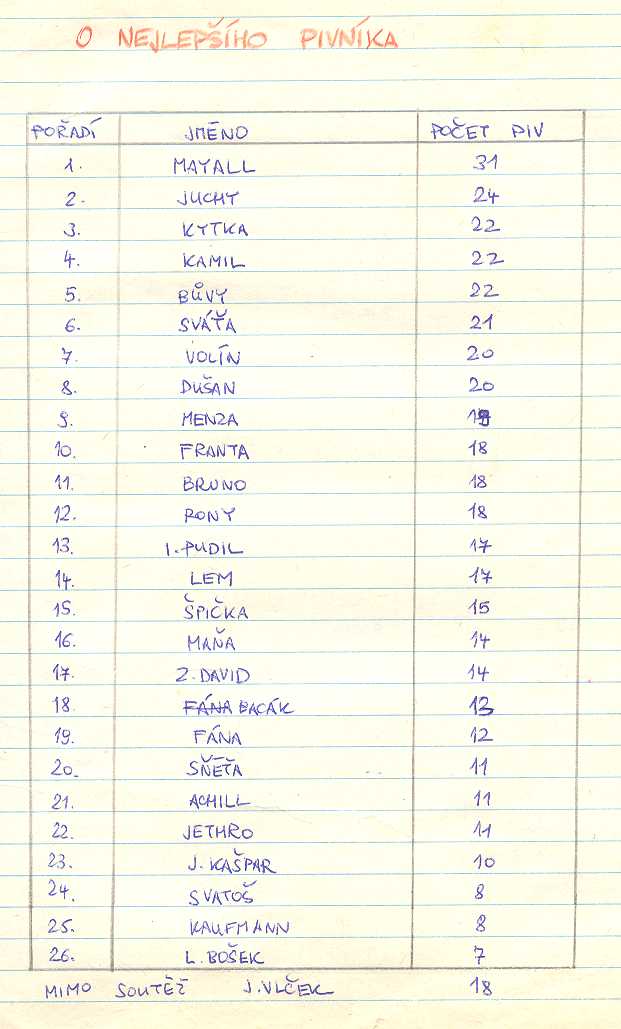 O NEJLEPŠÍHO PIVNÍKA
POŘADÍ JMÉNO POČET PIV
1. MAYALL 31
2. JUCHY 24
3. KYTKA 22
4. KAMIL 22
5. BŮVY 22
6. SVÁŤA 21
7. VOLÍN 20
8. DUŠAN 20
9. MENZA
10. FRANTA 18
11. BRUNO 18
12. RONY 18
13. 1. PUDIL 17
14. LEM 17
15. ŠPIČKA 15
16. MAŇA 14
17. 2. DAVID 14
18 FÁNA BACÁK 13
19. FÁNA 12
20. SŇĚŤA 11
21. ACHILL 11
22. JETHRO 11
23. J. KAŠPAR 10
24. SVATOŠ 8
25. KAUFMANN 8
26. L. BOŠEK 7
MIMO SOUTĚŽ J. VLČEK 18